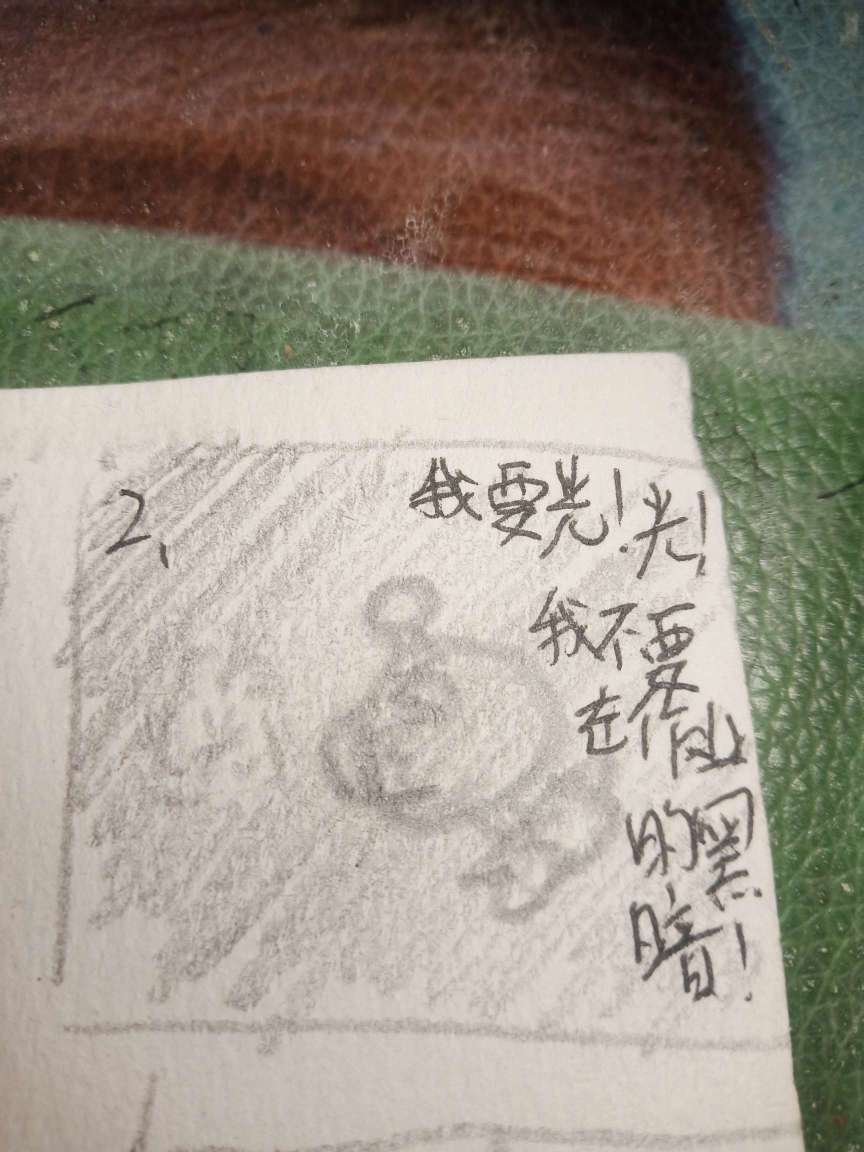 2、
我要光！光！
我不要
在的
的黑
暗！